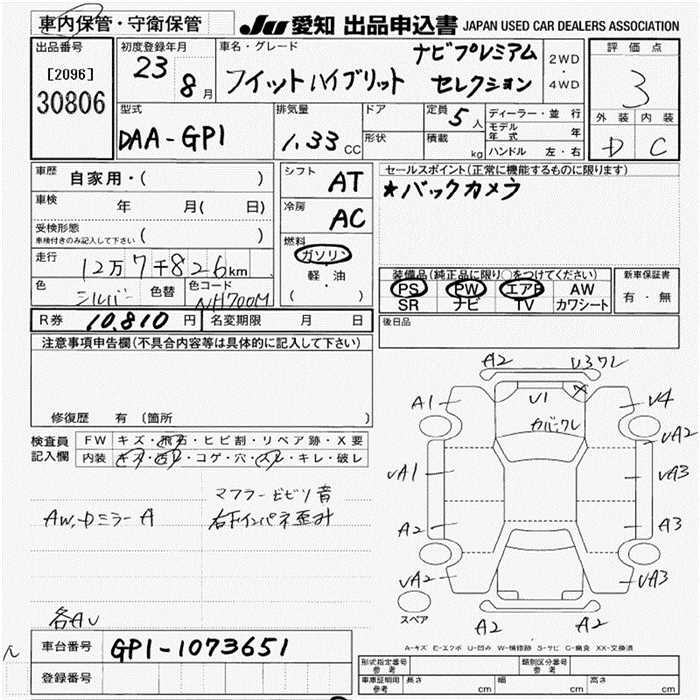 車内保管・守衛保管 JU 愛知 出品申込書 JAPAN USED CAR DEALERS ASSOCIATION
出品番号
[2096]
30806
初度登録年月
23 8月
車名・グレード
フィットハイブリット ナビプレミアム セレクション
2WD
・
4WD
評価点
3
外装 内装
D C
型式
DAA-GP1
排気量
1.33 CC
ドア
形状
定員 5人
積載 kg
ディーラー・並行
モデル年式 年
ハンドル 左・右
車歴 自家用・( )
車検 年 月( 日)
受検形態
車検付きのみ記入して下さい ( )
走行 12万7千826km
色 シルバー 色替 色コード NH700M
シフト AT
冷房 AC
燃料
ガソリン
軽・油
( )
セールスポイント(正常に機能するものに限ります)
★バックカメラ
装備品(純正品に限り○をつけてください)
PS PW エアB AW
SR ナビ TV カワシート
新車保証書
有・無
後日品
R券 10,810円 名変期限 月 日
注意事項申告欄(不具合内容等は具体的に記入して下さい)
修復歴 有(箇所 )
検査員記入欄
FW キズ・飛石・ヒビ割・リペア跡・X要
内装 キズ・汚レ・コゲ・穴・スレ・キレ・破レ
マフラービビリ音
AW,Dミラー A 右下インパネ歪ミ
各AU
車台番号 GP1-1073651
登録番号
A2 U3ワレ
A1 U1 X U4
カバーワレ
UA2
UA1 UA3
A2 A3
UA2 UA3
スペア
A2 A2
A-キズ E-エクボ U-凹み W-補修跡 S-サビ C-腐食 XX-交換済
型式指定番号 参考
類別区分番号 参考
車庫証明用 参考 長さ cm 幅 cm 高さ cm